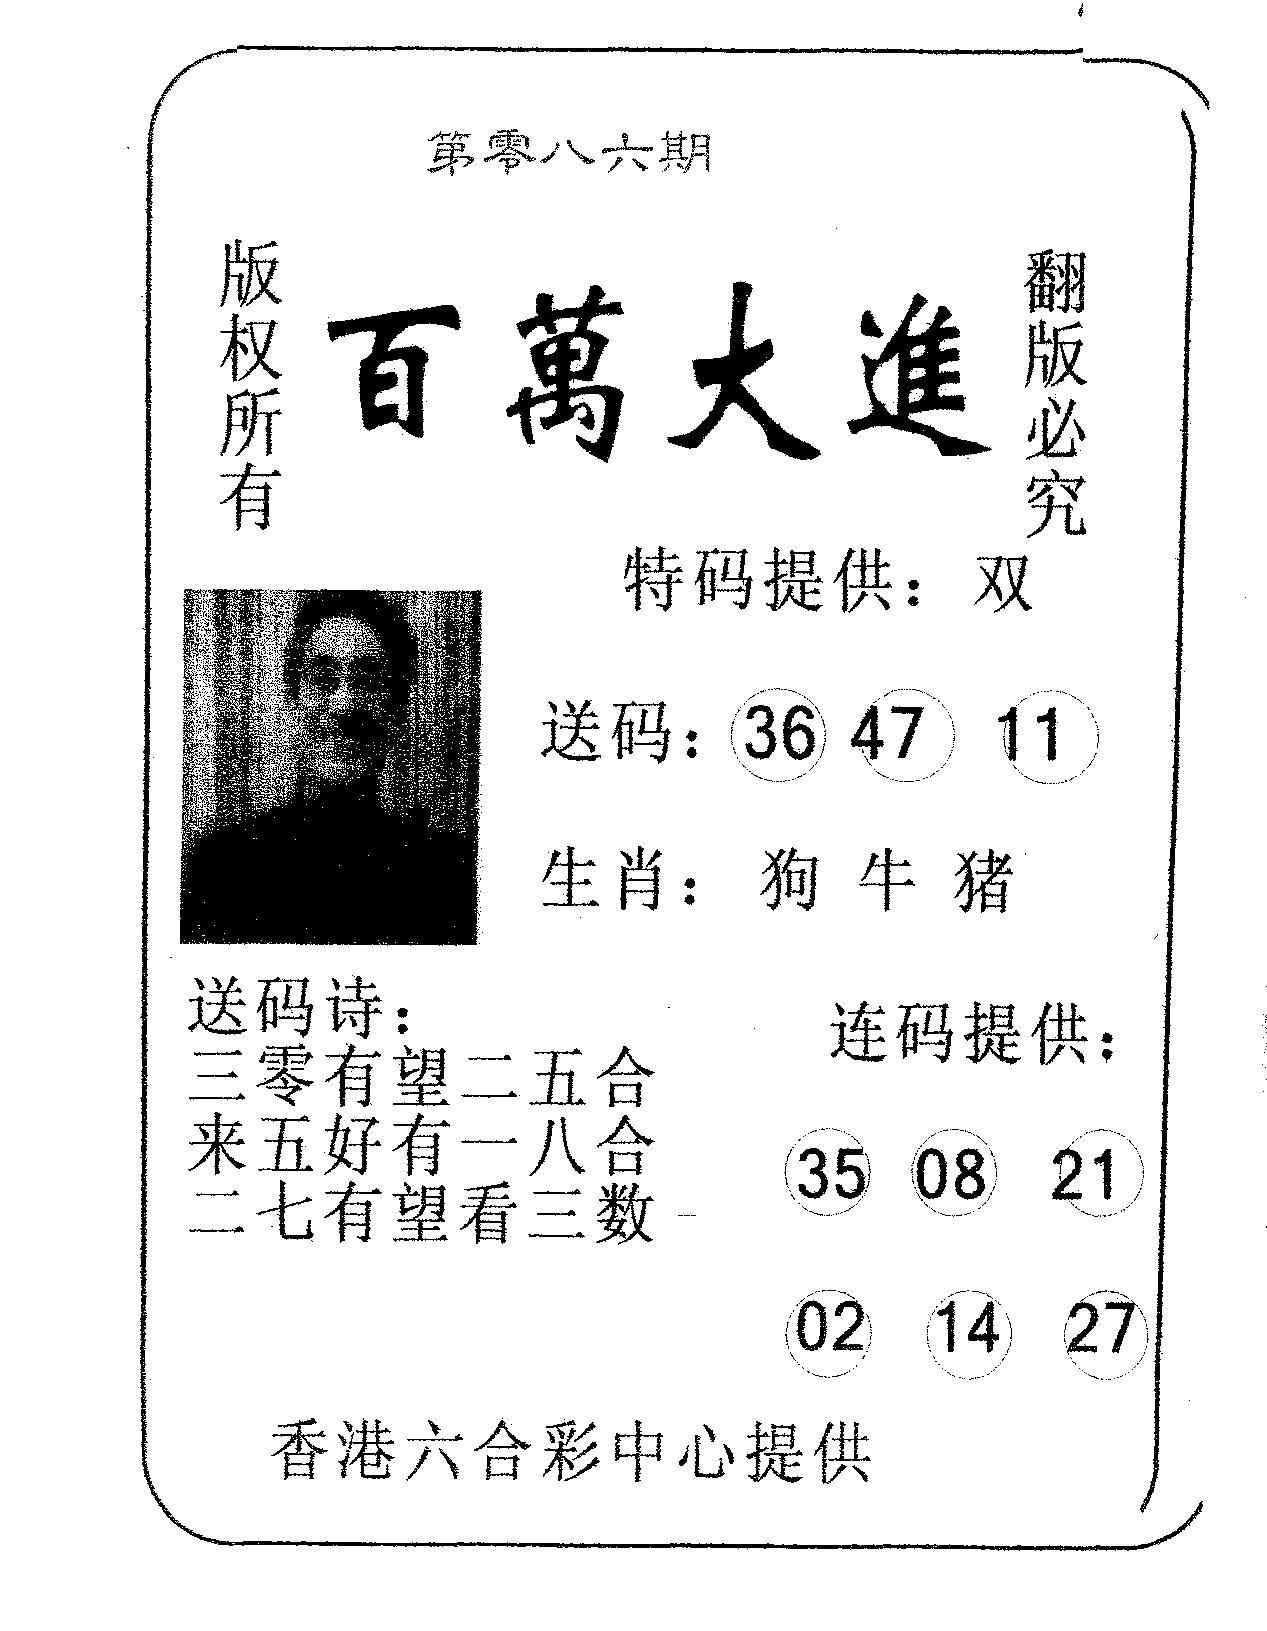 第零八六期
版权所有
百萬大進
翻版必究
特码提供：双
送码：36 47 11
生肖：狗 牛 猪
送码诗：
三零有望二五合
来五好有一八合
二七有望看三数
连码提供：
35 08 21
02 14 27
香港六合彩中心提供